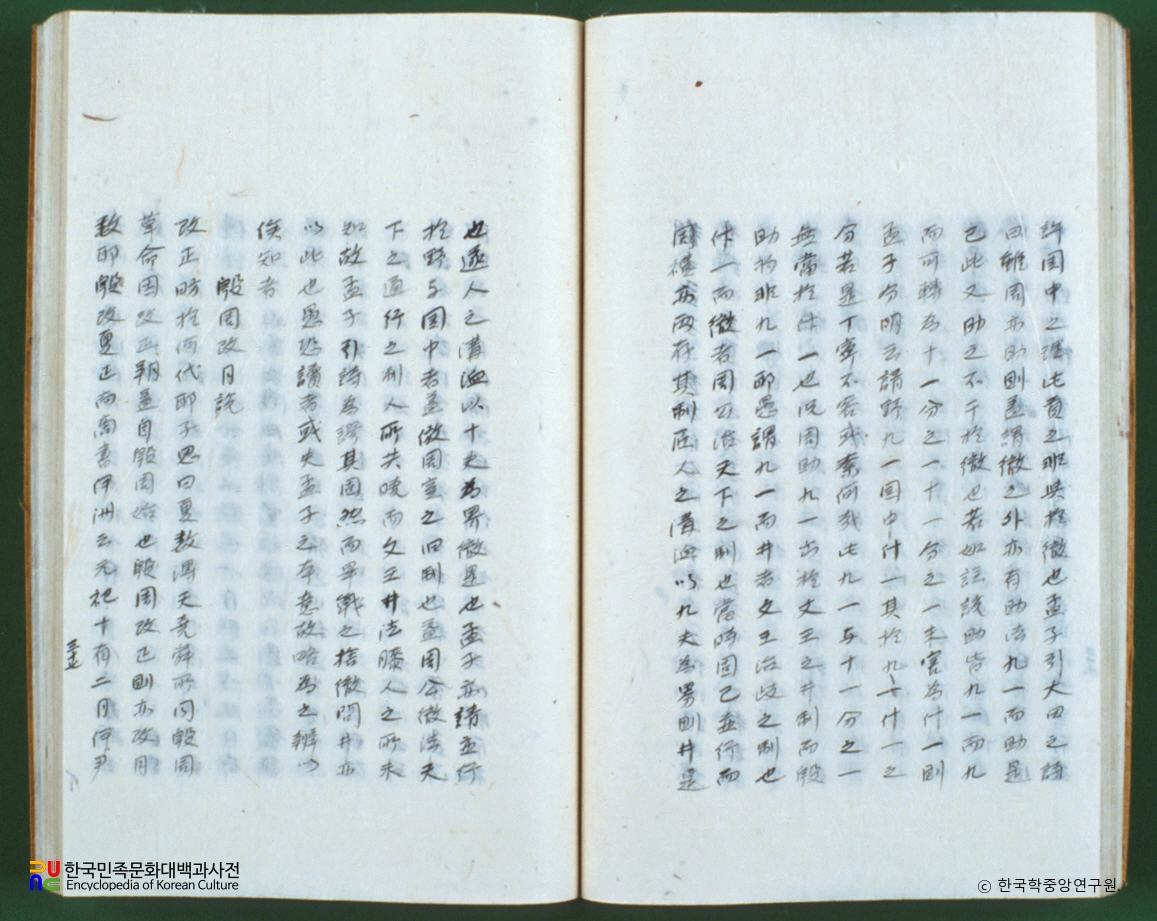 許國中之理此貢之非異於徹也孟子引大田之詩
曰雖周亦助則盖謂徹之外亦有助法九一而助是
已此又助之不干於徹也若如註說助皆九一而九
而可轉為十一分之一十一分之一未害為什一則
孟子分明云請野九一國中什一其於九一什一之
分若是丁寧不容或紊何哉此九一与十一分之一
無當於什一也况周助九一出於文王之井制而殷
助初非九一耶愚謂九一而井者文王治岐之制也
什一而徹者周公治天下之制也當時固已並行而
周禮亦两存其制匠人之溝洫以九夫為界則井是
也遂人之溝洫以十夫為界徹是也孟子亦請並行
於野与國中者盖倣周室之旧制也盖周公徹法天
下之通行之制人所共曉而文王井法滕人之所未
知故孟子引詩為證其固然而畢戰之捨徹問井亦
以此也愚恐讀者或失孟子之本意故略為之辨以
俟知者
殷周改月說
改正昉於何代耶子思曰夏数得天堯舜所同殷周
革命因改正朔盖自殷周始也殷周改正則亦改月
数耶殷改夏正而商書伊訓云元祀十有二月伊尹
三十七
한국민족문화대백과사전
Encyclopedia of Korean Culture
© 한국학중앙연구원